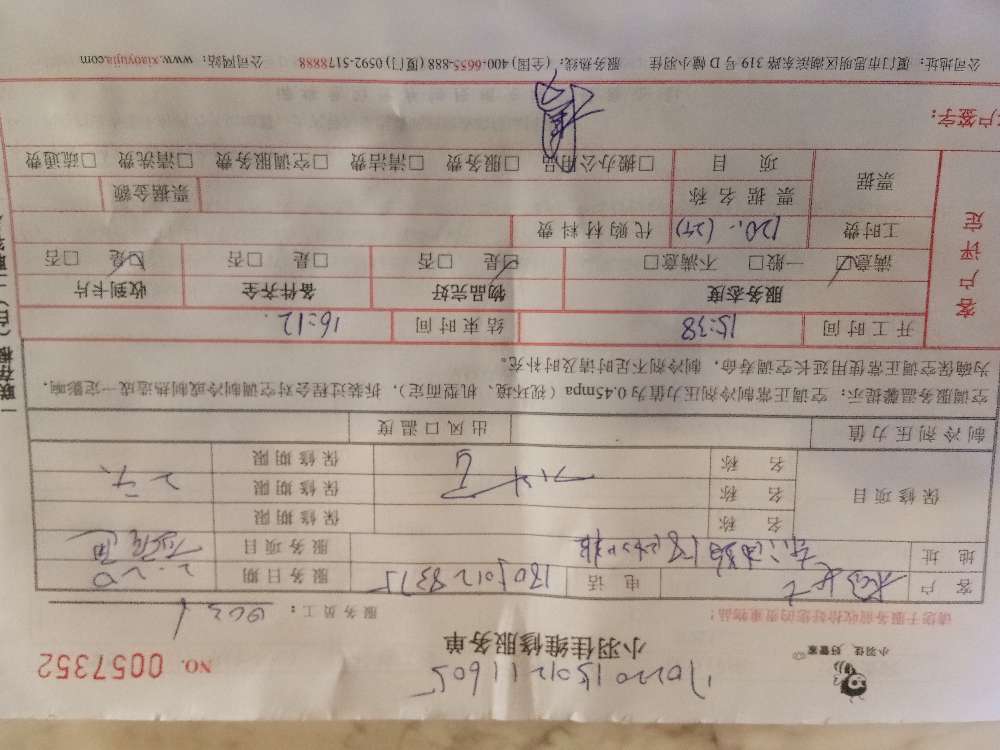 小羽佳 好管家
小羽佳维修服务单
NO. 0057352
请您于服务前收拾好您的贵重物品！
服务员工：
客户 电话 18050128375 服务日期 2.20
地址 服务项目
保修项目 名称 保修期限
名称 保修期限
名称 保修期限
制冷剂压力值 出风口温度
空调服务温馨提示：空调正常制冷剂压力值为0.45mpa（视环境、机型而定），拆装过程会对空调制冷或制热造成一定影响，
为确保空调正常使用延长空调寿命，制冷剂不足时请及时补充。
客户评定
开工时间 15:38 结束时间 16:12
服务态度 物品完好 备件齐全 收到卡片
满意□ 一般□ 不满意□ □是 □否 □是 □否 □是 □否
工时费 120. 代购材料费
票据 票据名称 票据金额
项目 □搬办公用品 □服务费 □清洁费 □空调服务费 □清洗费 □疏通费
客户签字：
公司地址：厦门市思明区湖滨东路319号D幢小羽佳 服务热线：(全国)400-6655-888 (厦门)0592-5178888 公司网站：www.xiaoyujia.com